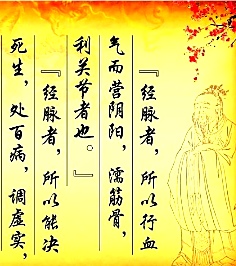 『经脉者，所以行血
气而营阴阳，濡筋骨，
利关节者也。』
『经脉者，所以能决
死生，处百病，调虚实，